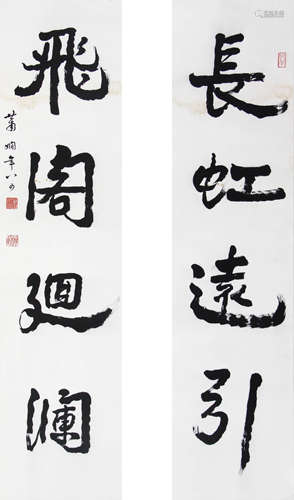 長虹遠引
飛閣迴瀾
蕭嫻年八十